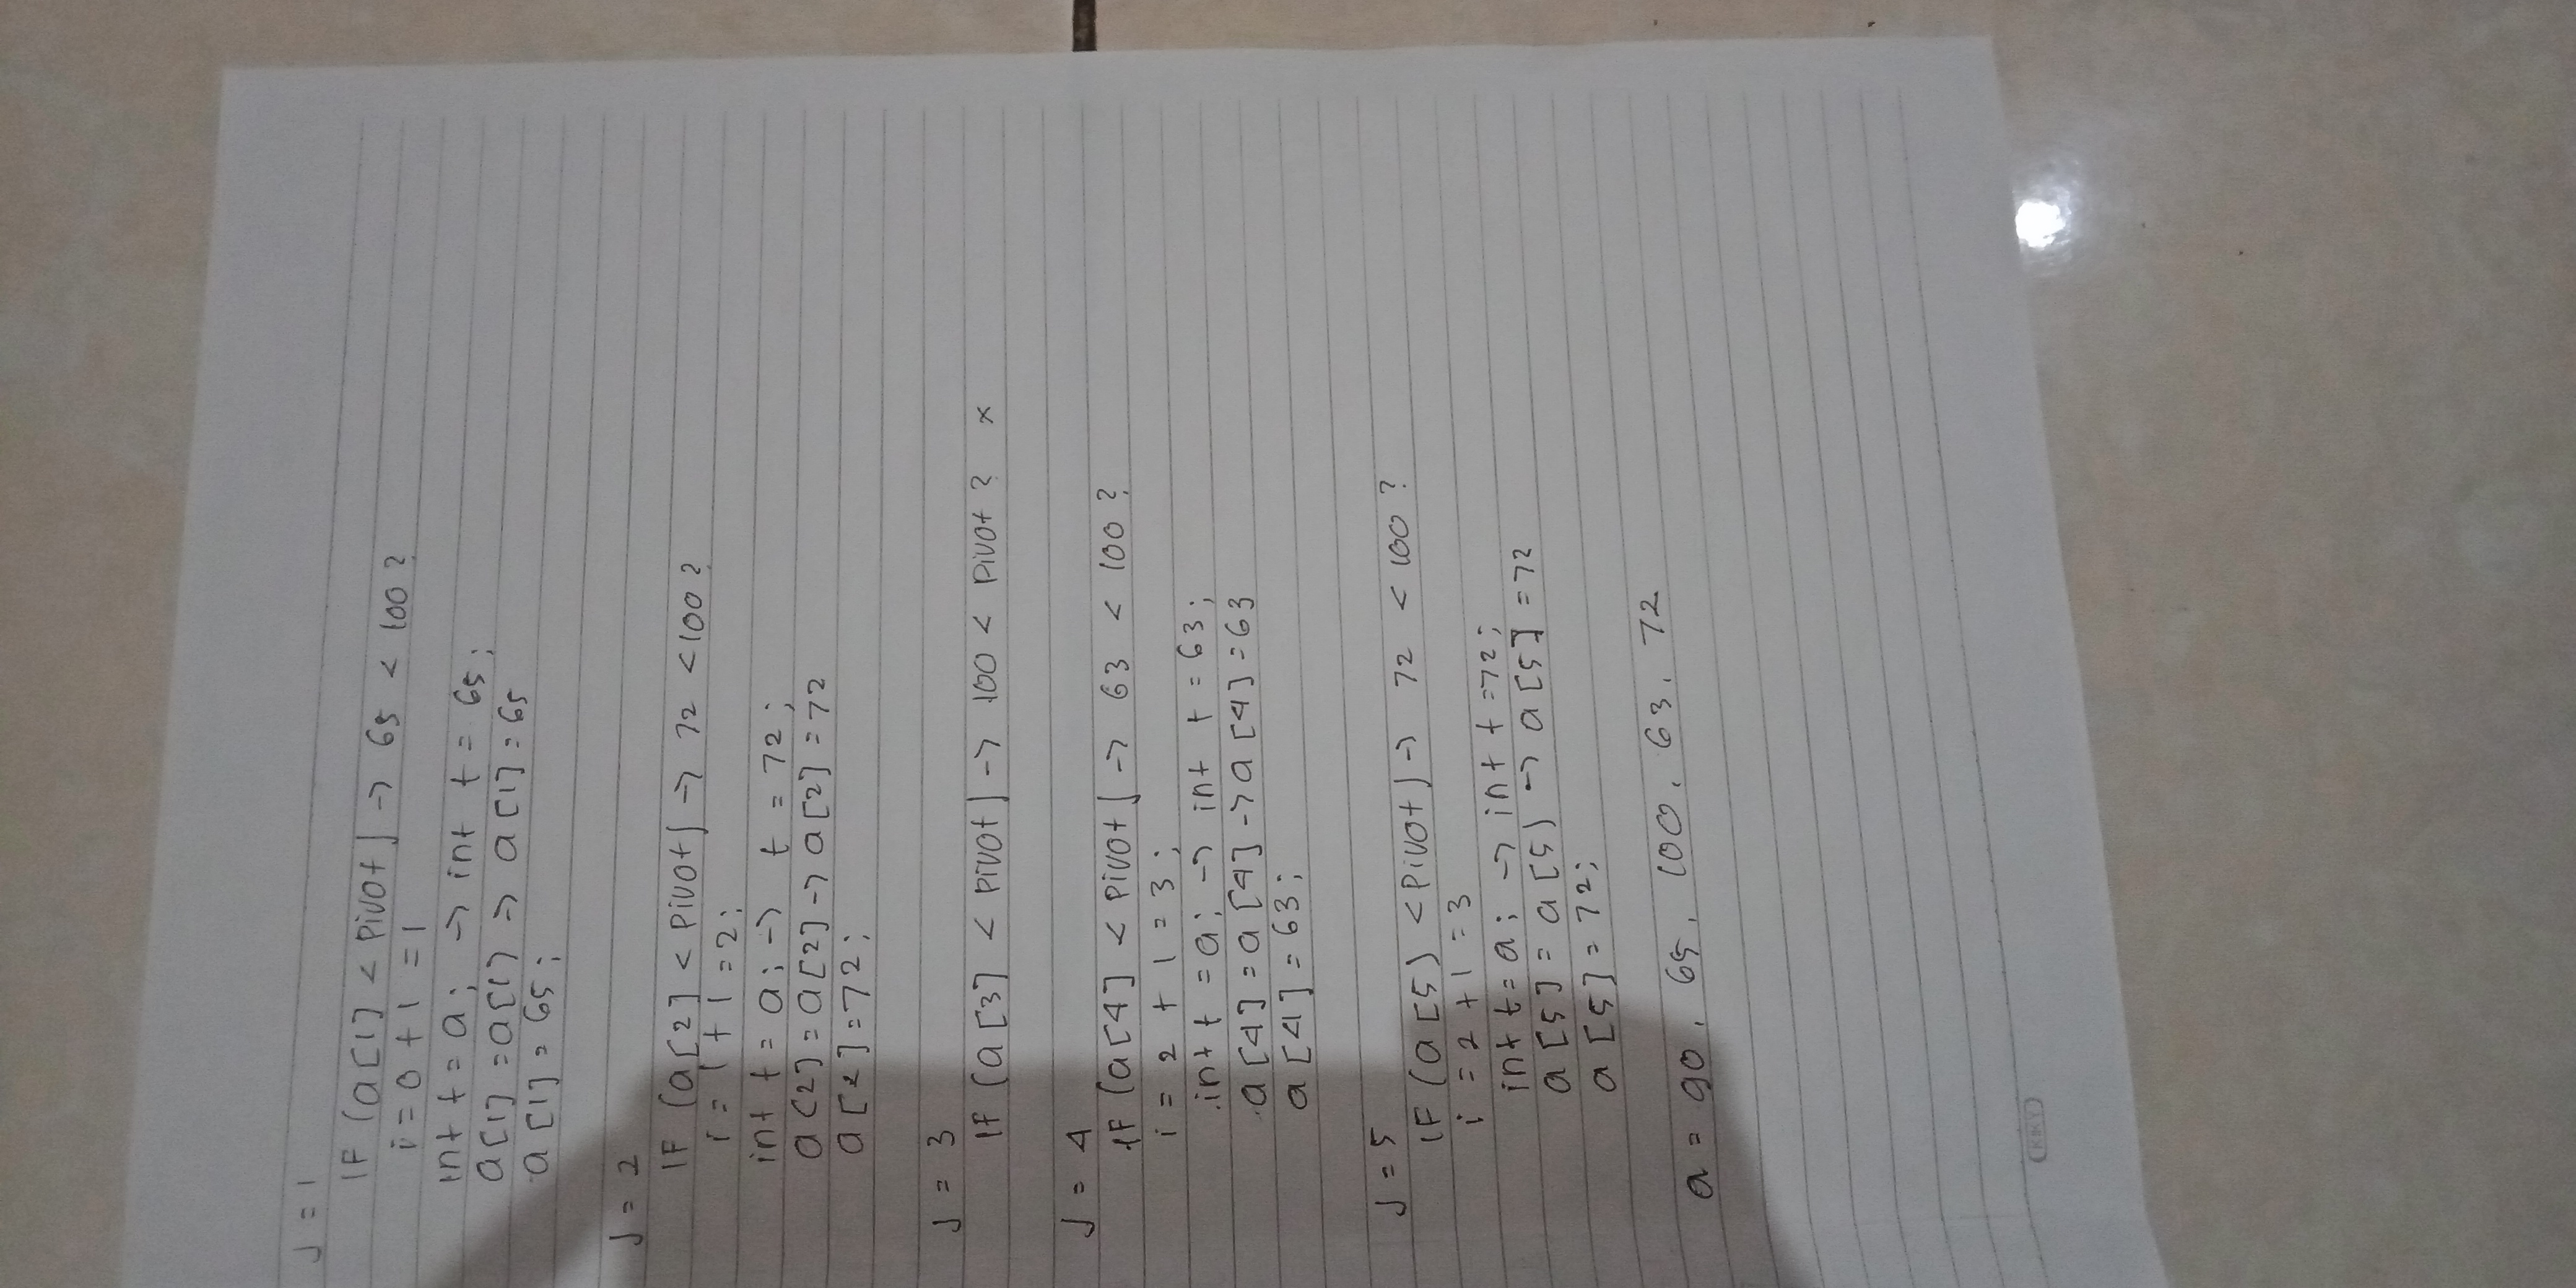 J = 1
IF (a[1] < Pivot) -> 65 < 100 ?
i = 0 + 1 = 1
int t = a; -> int t = 65;
a[1] = a[1] -> a[1] = 65
a[1] = 65;
J = 2
IF (a[2] < Pivot) -> 72 < 100 ?
i = 1 + 1 = 2;
int t = a; -> t = 72;
a[2] = a[2] -> a[2] = 72
a[2] = 72;
J = 3
IF (a[3] < Pivot) -> 100 < Pivot ? x
J = 4
IF (a[4] < Pivot) -> 63 < 100 ?
i = 2 + 1 = 3;
int t = a; -> int t = 63;
a[4] = a[4] -> a[4] = 63
a[4] = 63;
J = 5
IF (a[5) < Pivot) -> 72 < 100 ?
i = 2 + 1 = 3
int t = a; -> int t = 72;
a[5] = a[5) -> a[5] = 72
a[5] = 72;
a = 90, 65, 100, 63, 72
KIKY